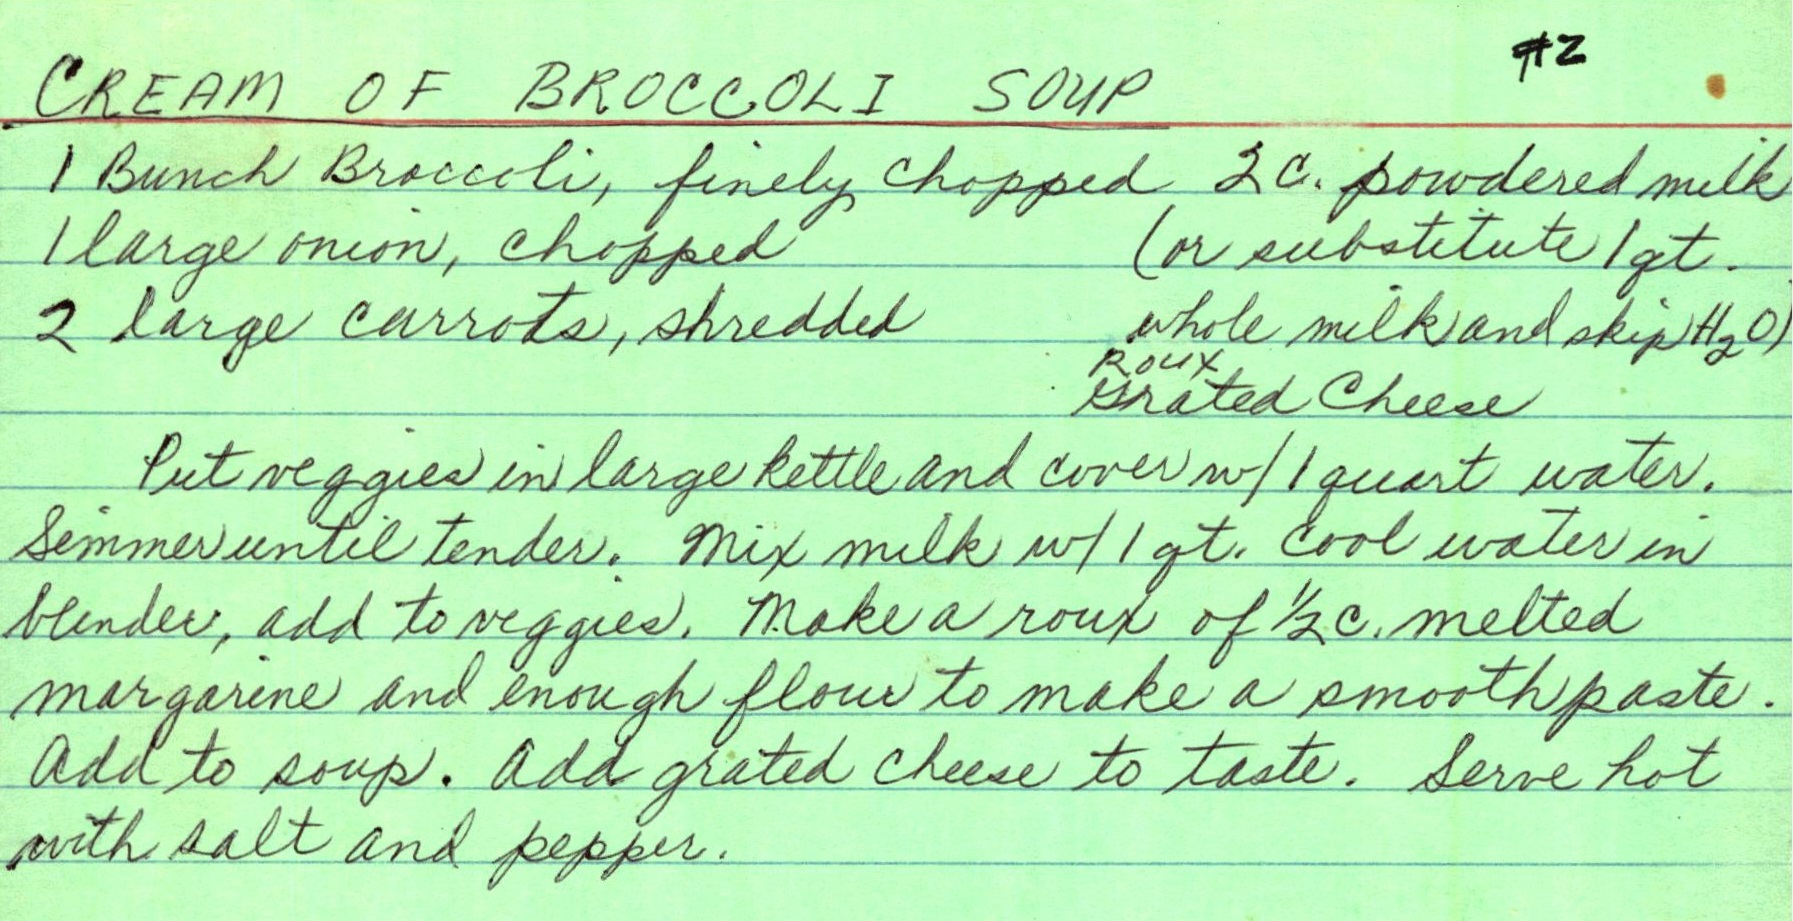 #2
CREAM OF BROCCOLI SOUP
1 Bunch Broccoli, finely chopped 2 c. powdered milk
1 large onion, chopped (or substitute 1 qt.
2 large carrots, shredded whole milk and skip H2O)
Roux
Grated Cheese
Put veggies in large kettle and cover w/ 1 quart water.
Simmer until tender. Mix milk w/ 1 qt. cool water in
blender, add to veggies. Make a roux of ½ c. melted
margarine and enough flour to make a smooth paste.
Add to soup. Add grated cheese to taste. Serve hot
with salt and pepper.